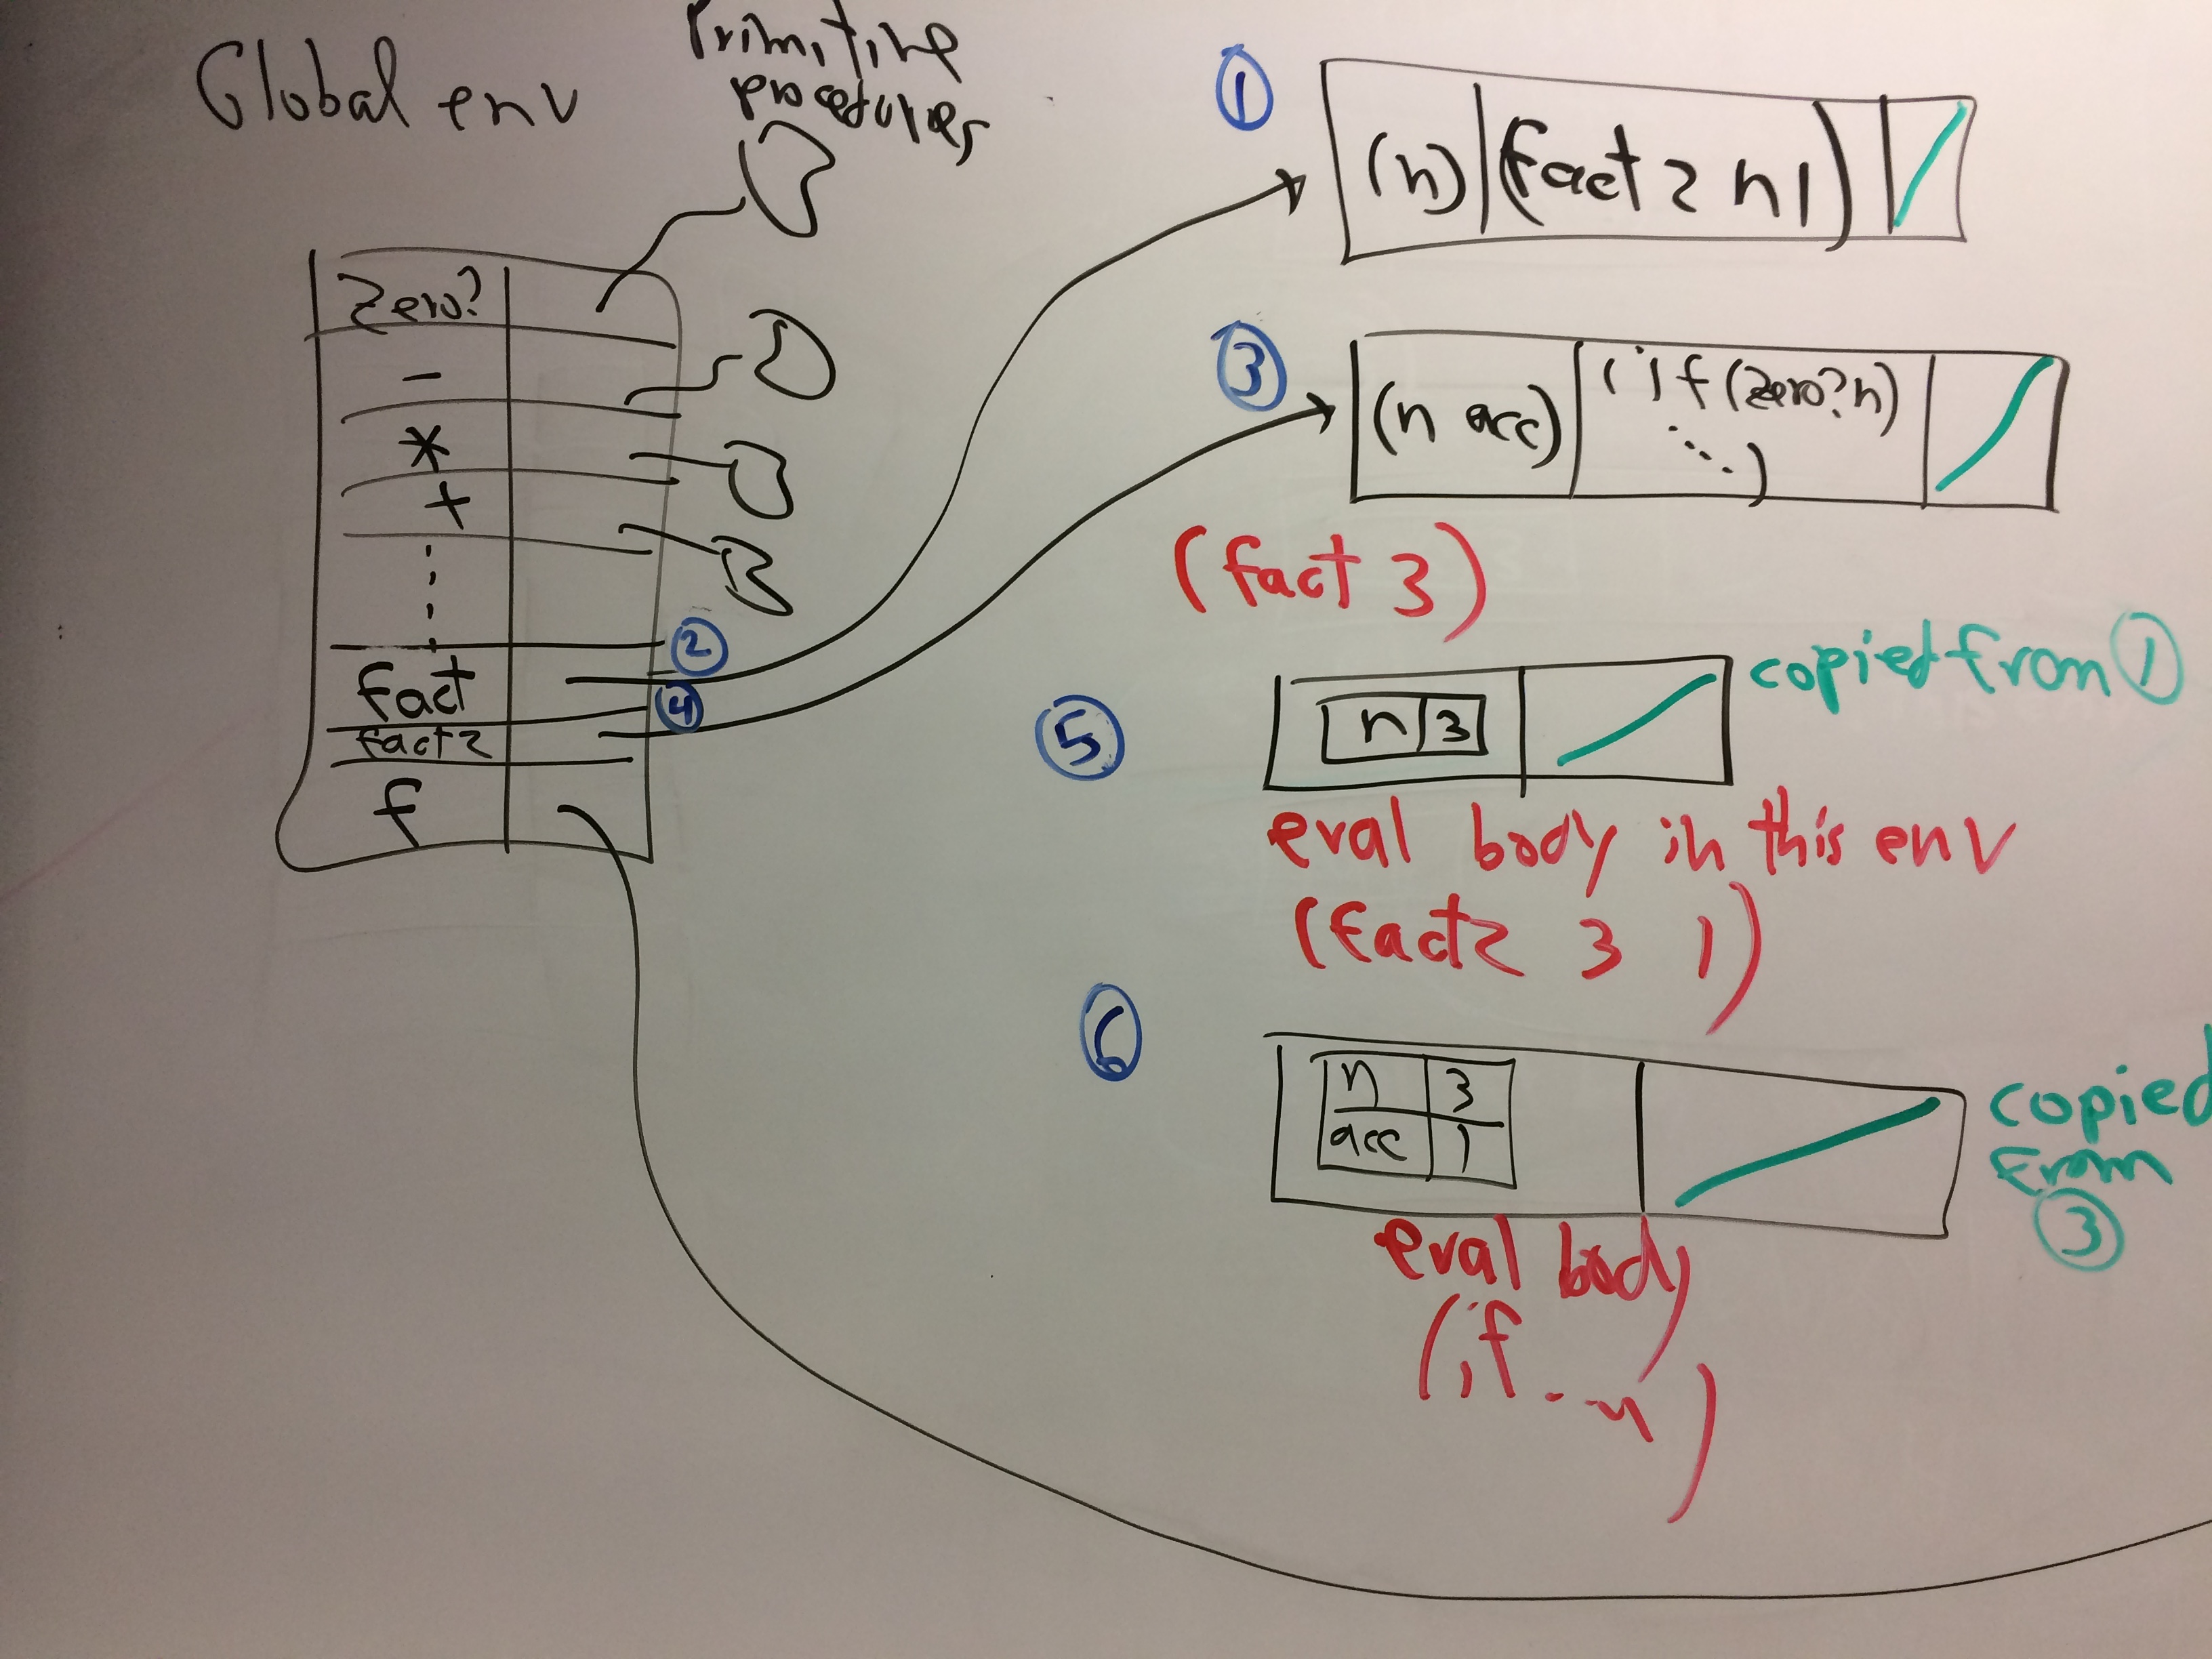 Global env
Primitive
procedures
zero?
-
*
+
fact
fact2
f
②
④
①
(n) (fact 2 n 1)
③
(n acc) (if (zero? n)
...)
(fact 3)
⑤
n 3
copied from ①
eval body in this env
(fact2 3 1)
⑥
n 3
acc 1
copied
from
③
eval body
(if ...)